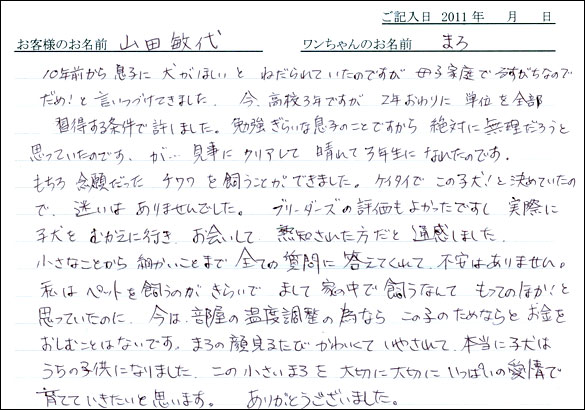 ご記入日 2011年 月 日
お客様のお名前 山田敏代 ワンちゃんのお名前 まろ
10年前から息子に犬がほしいとねだられていたのですが母子家庭で
だめ!と言いつづけてきました。今、高校3年ですが2年おわりに単位を全部
習得する条件で許しました。勉強ぎらいな息子のことですから絶対に無理だろうと
思っていたのです、が…見事にクリアして晴れて3年生になれたのです。
もちろん念願だったチワワを飼うことができました。ケイタイでこの子犬!と決めていたの
で、迷いはありませんでした。ブリーダーズの評価もよかったですし実際に
子犬をむかえに行き、お会いして、熟知された方だと通感しました。
小さなことから細かいことまで全ての質問に答えてくれて、不安はありません。
私はペットを飼うのがきらいでまして家の中で飼うなんてもってのほか!と
思っていたのに、今は、部屋の温度調整の為ならこの子のためならとお金を
おしむことはないです。まろの顔見るたびかわいくていやされて、本当に子犬は
うちの子供になりました。この小さいまろを大切に大切にいっぱいの愛情で
育てていきたいと思います。ありがとうございました。